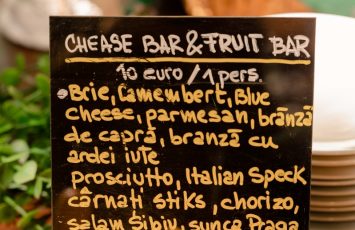 CHEASE BAR & FRUIT BAR
10 euro / 1 pers.
Brie, Camembert, Blue
cheese, parmesan, brânză
de capră, branză cu
ardei iute
prosciutto, Italian Speck
cârnați stiks, chorizo,
salam Sibiu, sunca Praga